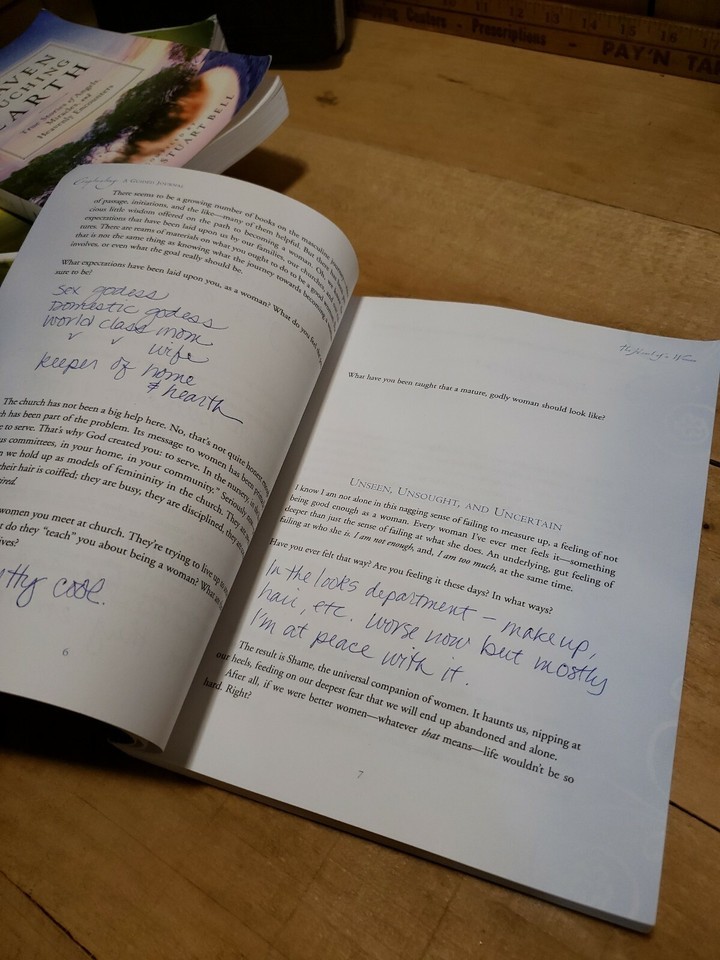 Centers - Prescriptions - PAY'N TA
11 12 13 14 15 16
AVEN
UCHING
EARTH
True Stories of Angels,
Miracles, and
Heavenly Encounters
STUART BELL
A Guided Journal
There seems to be a growing number of books on the masculine
of passage, initiations, and the like—many of them helpful. But there has been
cious little wisdom offered on the path to becoming a woman. Oh, we
expectations that have been laid upon us by our families, our churches, and
tures. There are reams of materials on what you ought to do to be a good
that is not the same thing as knowing what the journey towards becoming
involves, or even what the goal really should be.
What expectations have been laid upon you, as a woman? What do you feel
sure to be?
Sex godess
Domestic godess
World class mom
v v wife
keeper of home
& hearth
The church has not been a big help here. No, that's not quite honest
ch has been part of the problem. Its message to women has been
e to serve. That's why God created you: to serve. In the nursery, in
us committees, in your home, in your community." Seriously
n we hold up as models of femininity in the church. They are
their hair is coiffed; they are busy, they are disciplined, they are
ired.
women you meet at church. They're trying to live up to
t do they "teach" you about being a woman? What are
ives?
tty cool.
6
What have you been taught that a mature, godly woman should look like?
Unseen, Unsought, and Uncertain
I know I am not alone in this nagging sense of failing to measure up, a feeling of not
being good enough as a woman. Every woman I've ever met feels it—something
deeper than just the sense of failing at what she does. An underlying, gut feeling of
failing at who she is. I am not enough, and, I am too much, at the same time.
Have you ever felt that way? Are you feeling it these days? In what ways?
In the looks department – makeup,
hair, etc. Worse now but mostly
I'm at peace with it.
The result is Shame, the universal companion of women. It haunts us, nipping at
our heels, feeding on our deepest fear that we will end up abandoned and alone.
After all, if we were better women—whatever that means—life wouldn't be so
hard. Right?
7